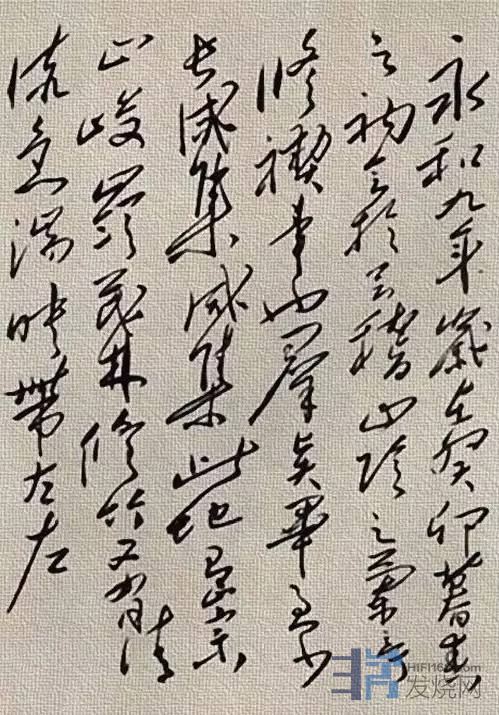 永和九年歲在癸卯暮春
之初會於会稽山陰之蘭亭
修禊事也羣賢畢至少
長咸集咸集此地有崇
山峻嶺茂林修竹又有清
流急湍映帶左左
发烧网